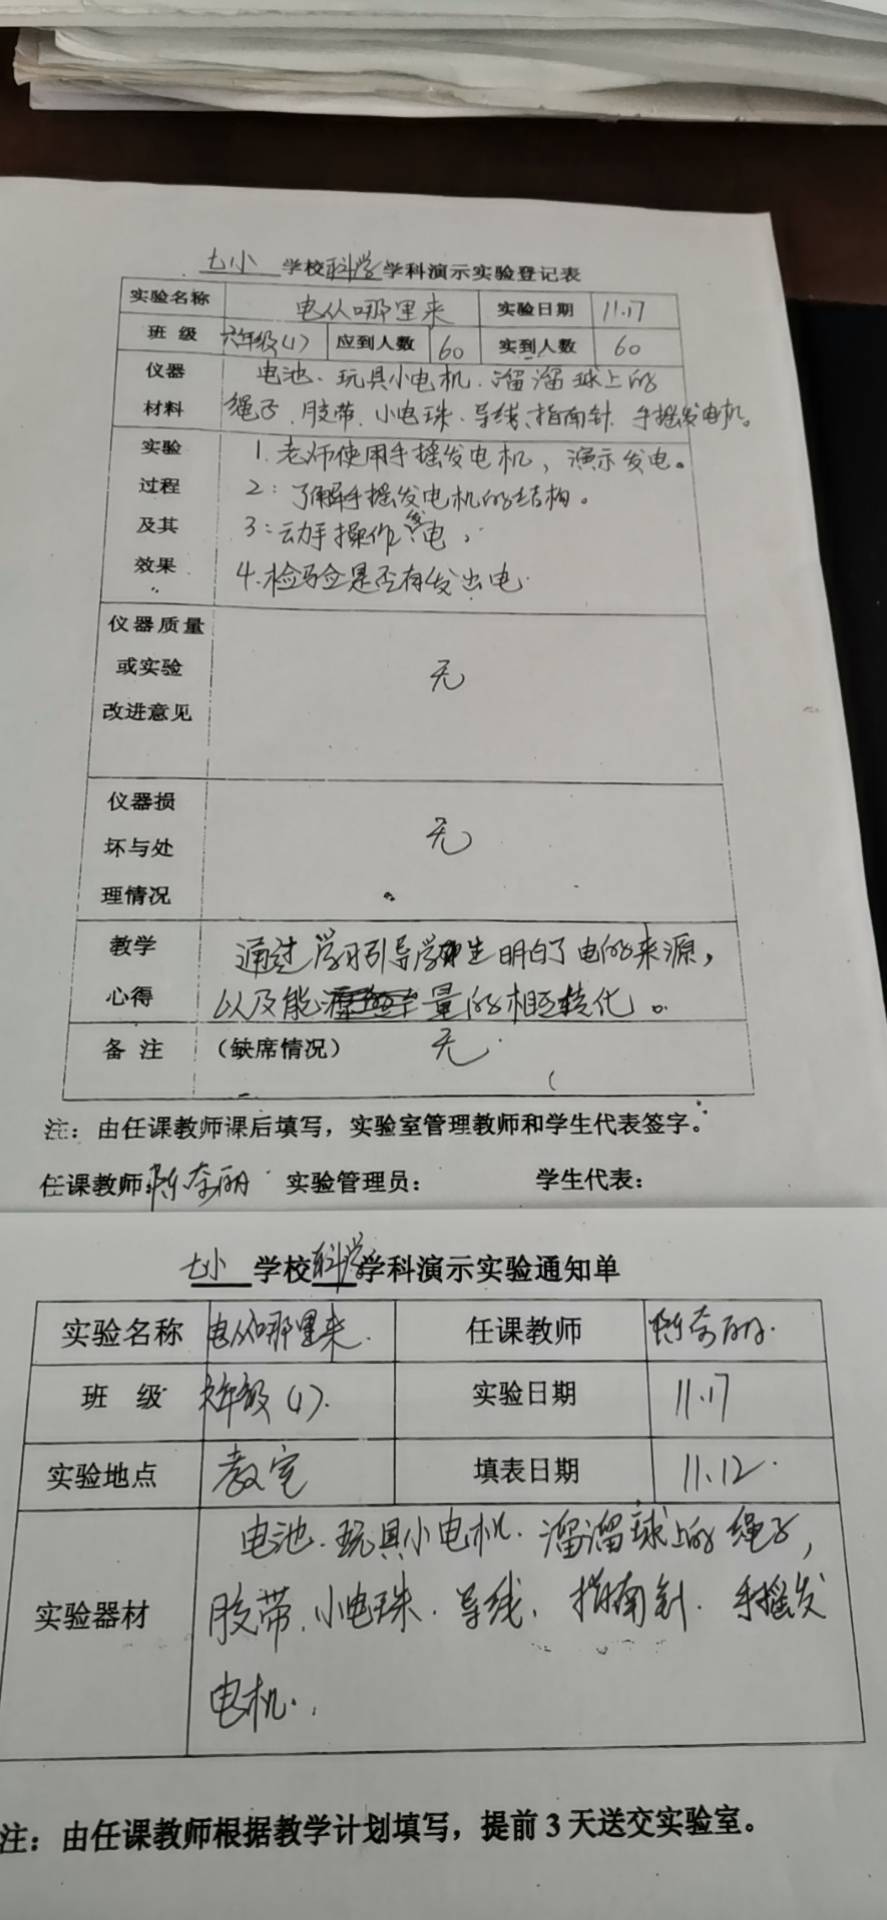 七小 学校科学学科演示实验登记表
实验名称 电从哪里来 实验日期 11.17
班 级 六年级(1) 应到人数 60 实到人数 60
仪器 电池、玩具小电机、溜溜球上的
材料 绳子、胶带、小电珠、导线、指南针、手摇发电机。
实验 1.老师使用手摇发电机，演示发电。
过程 2:了解手摇发电机的结构。
及其 3:动手操作发电，
效果 4.检验是否有发出电.
仪器质量
或实验 无
改进意见
仪器损
坏与处 无
理情况
教学 通过学习引导学生明白了电的来源，
心得 以及能量的相互转化。
备 注 （缺席情况） 无.
注：由任课教师课后填写，实验室管理教师和学生代表签字。
任课教师: 陈 丽 实验管理员： 学生代表：
七小 学校科学学科演示实验通知单
实验名称 电从哪里来. 任课教师 陈 丽.
班 级 六年级(1). 实验日期 11.17
实验地点 教室 填表日期 11.12.
电池、玩具小电机、溜溜球上的绳子，
实验器材 胶带、小电珠、导线、指南针、手摇发
电机.
注：由任课教师根据教学计划填写，提前 3 天送交实验室。